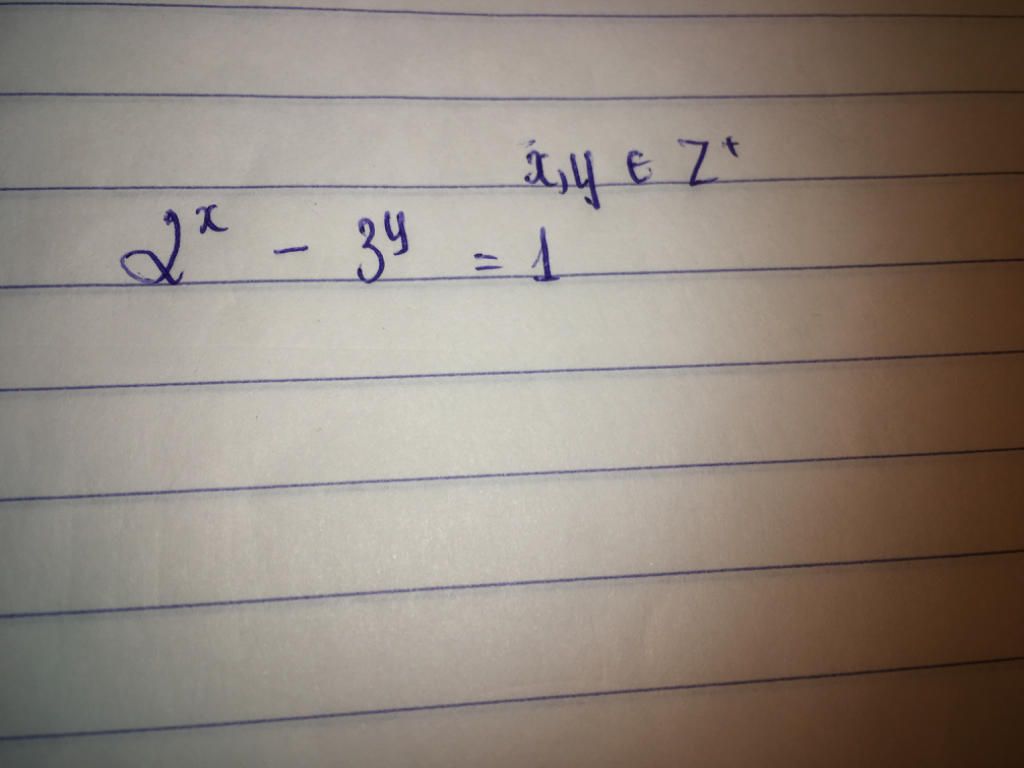 x, y ∈ Z⁺
2ˣ - 3ʸ = 1